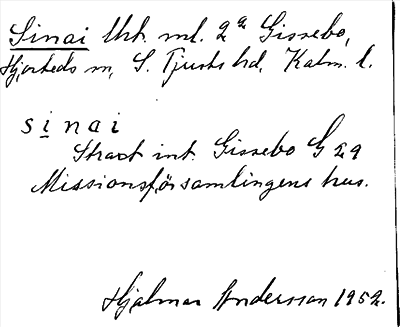 Sinai lht. ml. 2ª Gissebo,
Hjorteds sn, S. Tjusts hd, Kalm. l.
sinai
Strax int. Gissebo G 29
Missionsförsamlingens hus.
Hjalmar Andersson 1952.